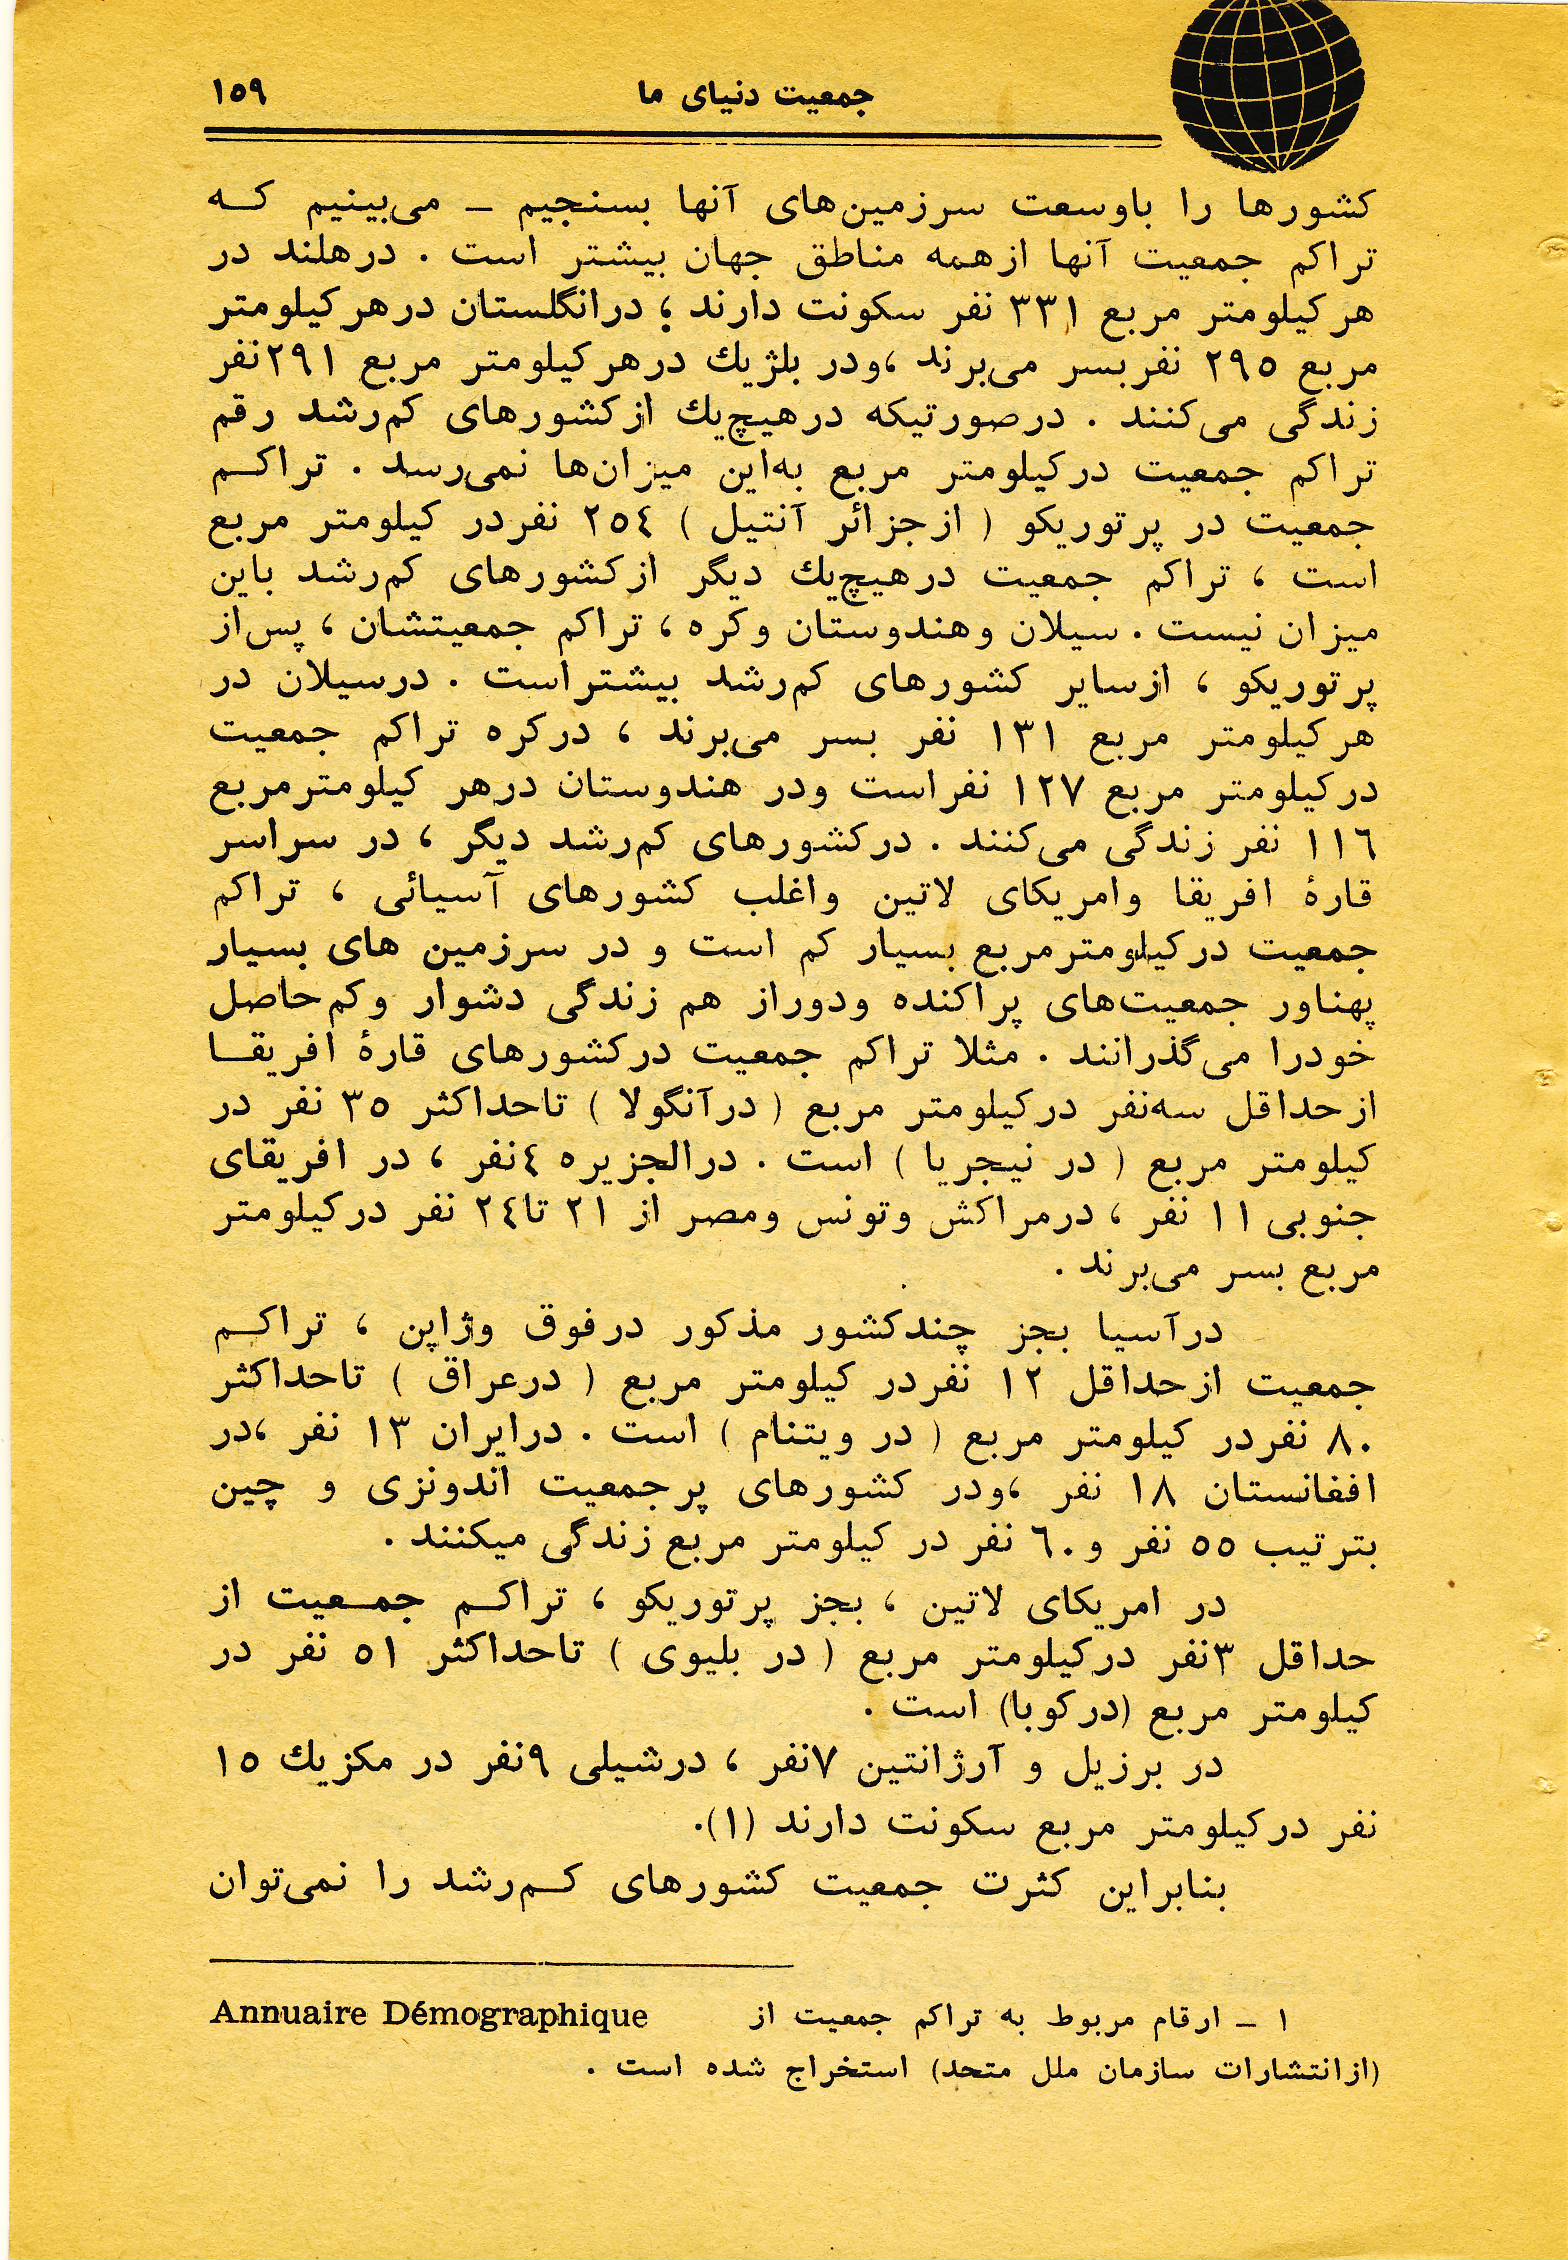 جمعیت دنیای ما
۱٥۹
کشورها را باوسعت سرزمین‌های آنها بسنجیم ـ می‌بینیم کـه
تراکم جمعیت آنها ازهمه مناطق جهان بیشتر است . درهلند در
هرکیلومتر مربع ۳۳۱ نفر سکونت دارند ؛ درانگلستان درهرکیلومتر
مربع ۲۹٥ نفربسر می‌برند ،ودر بلژیك درهرکیلومتر مربع ۲۹۱نفر
زندگی می‌کنند . درصورتیکه درهیچ‌یك ازکشورهای کم‌رشد رقم
تراکم جمعیت درکیلومتر مربع به‌این میزان‌ها نمی‌رسد . تراکـم
جمعیت در پرتوریکو ( ازجزائر آنتیل ) ۲٥٤ نفردر کیلومتر مربع
است ، تراکم جمعیت درهیچ‌یك دیگر ازکشورهای کم‌رشد باین
میزان نیست . سیلان وهندوستان وکره ، تراکم جمعیتشان ، پس‌از
پرتوریکو ، ازسایر کشورهای کم‌رشد بیشتراست . درسیلان در
هرکیلومتر مربع ۱۳۱ نفر بسر می‌برند ، درکره تراکم جمعیت
درکیلومتر مربع ۱۲۷ نفراست ودر هندوستان درهر کیلومترمربع
۱۱٦ نفر زندگی می‌کنند . درکشورهای کم‌رشد دیگر ، در سراسر
قارهٔ افریقا وامریکای لاتین واغلب کشورهای آسیائی ، تراکم
جمعیت درکیلومترمربع بسیار کم است و در سرزمین های بسیار
پهناور جمعیت‌های پراکنده ودوراز هم زندگی دشوار وکم‌حاصل
خودرا می‌گذرانند . مثلا تراکم جمعیت درکشورهای قارهٔ افریقـا
ازحداقل سه‌نفر درکیلومتر مربع ( درآنگولا ) تاحداکثر ۳٥ نفر در
کیلومتر مربع ( در نیجریا ) است . درالجزیره ٤نفر ، در افریقای
جنوبی ۱۱ نفر ، درمراکش وتونس ومصر از ۲۱ تا۲٤ نفر درکیلومتر
مربع بسر می‌برند .
درآسیا بجز چندکشور مذکور درفوق وژاپن ، تراکـم
جمعیت ازحداقل ۱۲ نفردر کیلومتر مربع ( درعراق ) تاحداکثر
۸۰ نفردر کیلومتر مربع ( در ویتنام ) است . درایران ۱۳ نفر ،در
افغانستان ۱۸ نفر ،ودر کشورهای پرجمعیت اندونزی و چین
بترتیب ٥٥ نفر و٦۰ نفر در کیلومتر مربع زندگی میکنند .
در امریکای لاتین ، بجز پرتوریکو ، تراکـم جمـعیت از
حداقل ۳نفر درکیلومتر مربع ( در بلیوی ) تاحداکثر ٥۱ نفر در
کیلومتر مربع (درکوبا) است .
در برزیل و آرژانتین ۷نفر ، درشیلی ۹نفر در مکزیك ۱٥
نفر درکیلومتر مربع سکونت دارند (۱).
بنابراین کثرت جمعیت کشورهای کـم‌رشد را نمی‌توان
۱ ـ ارقام مربوط به تراکم جمعیت از Annuaire Démographique
(ازانتشارات سازمان ملل متحد) استخراج شده است .